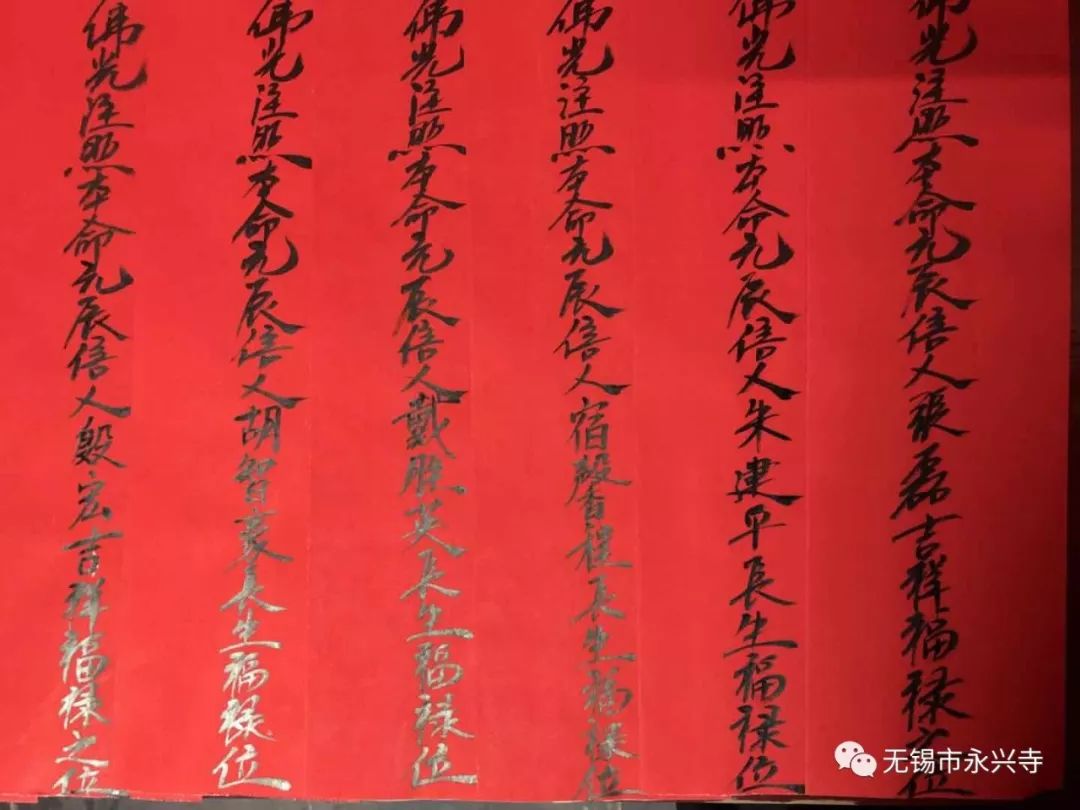 佛光注照本命元辰信人張磊吉祥福禄之位
佛光注照本命元辰信人朱建平長生福禄位
佛光注照本命元辰信人宿馨程長生福禄位
佛光注照本命元辰信人戴胜英長生福禄位
佛光注照本命元辰信人胡智豪長生福禄位
佛光注照本命元辰信人殷宏吉祥福禄之位
无锡市永兴寺